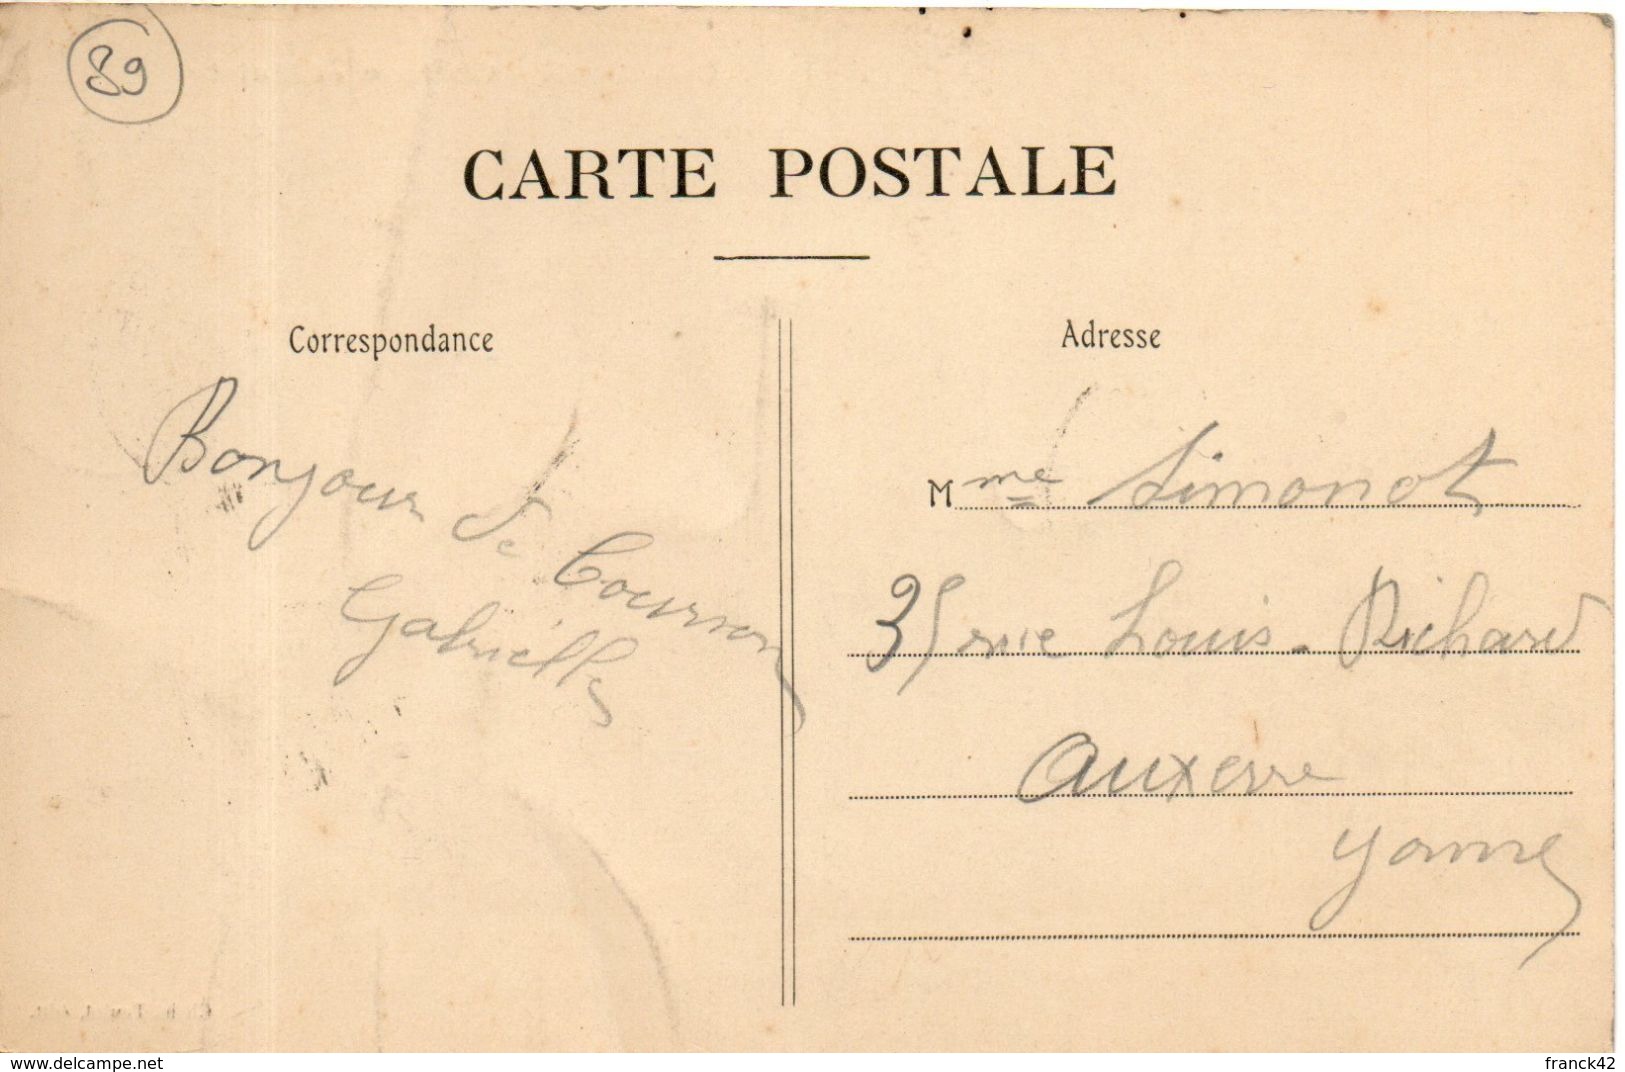 89
CARTE POSTALE
Correspondance
Bonjour de Courson
Gabrielle
Adresse
Mme Simonot
35 rue Louis-Richard
Auxerre
Yonne
www.delcampe.net
franck42